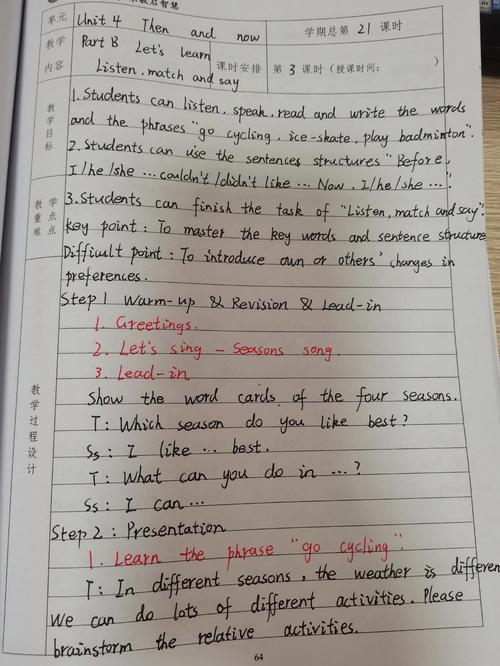 启智慧
单元 Unit 4 Then and now 学期总第 21 课时
教学内容 Part B Let's learn
Listen, match and say 课时安排 第 3 课时 (授课时间: )
教学目标 1. Students can listen, speak, read and write the words
and the phrases "go cycling, ice-skate, play badminton".
2. Students can use the sentences structures "Before,
I/he/she ... couldn't/didn't like ... Now, I/he/she ...".
教学重点难点 3. Students can finish the task of "Listen, match and say".
key point: To master the key words and sentence structure
Difficult point: To introduce own or others' changes in
preferences.
教学过程设计
Step 1 Warm-up & Revision & Lead-in
1. Greetings.
2. Let's sing – Seasons song.
3. Lead-in
Show the word cards of the four seasons.
T: Which season do you like best?
Ss: I like ... best.
T: What can you do in ...?
Ss: I can ...
Step 2: Presentation
1. Learn the phrase "go cycling".
T: In different seasons, the weather is differen
We can do lots of different activities. Please
brainstorm the relative activities.
64